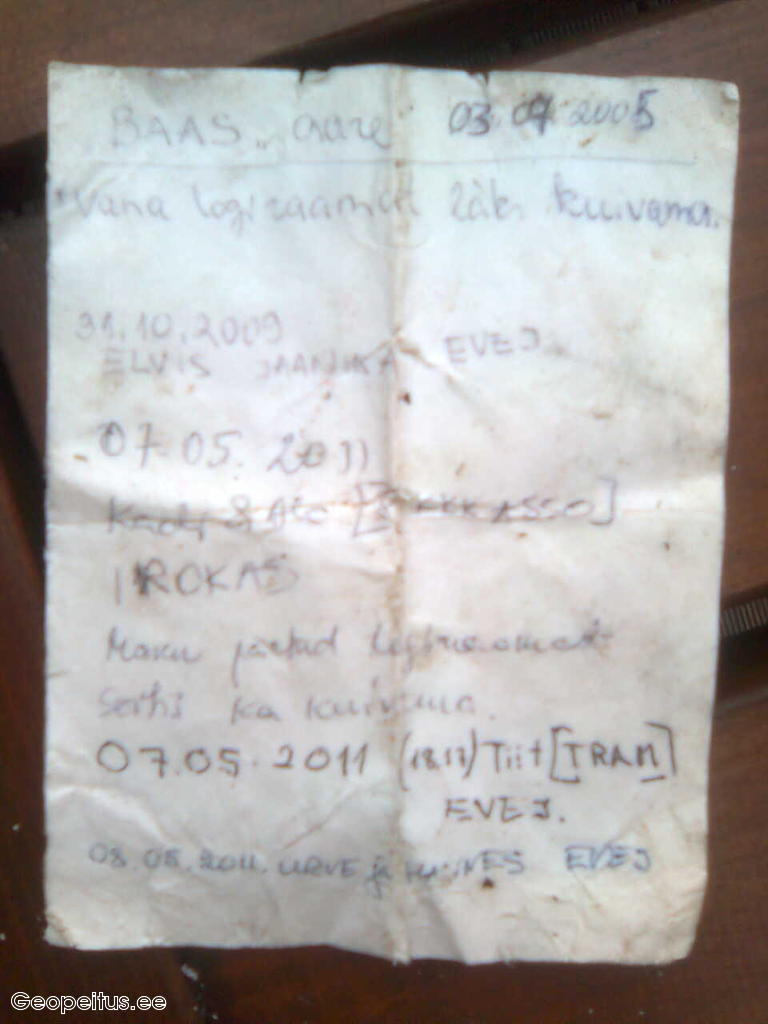 BAAS, Aare 03.07.2005
Vana logiraamat läks kuivama.
31.10.2009
ELVIS JAANIKA EVEJ
07.05.2011
Kadi & Ats
IROKAS
jäetud
ka kuivama.
07.05.2011 (18.17) Tiit [TRAM]
EVEJ.
08.05.2011. URVE ja HANNES EVEJ
Geopeitus.ee